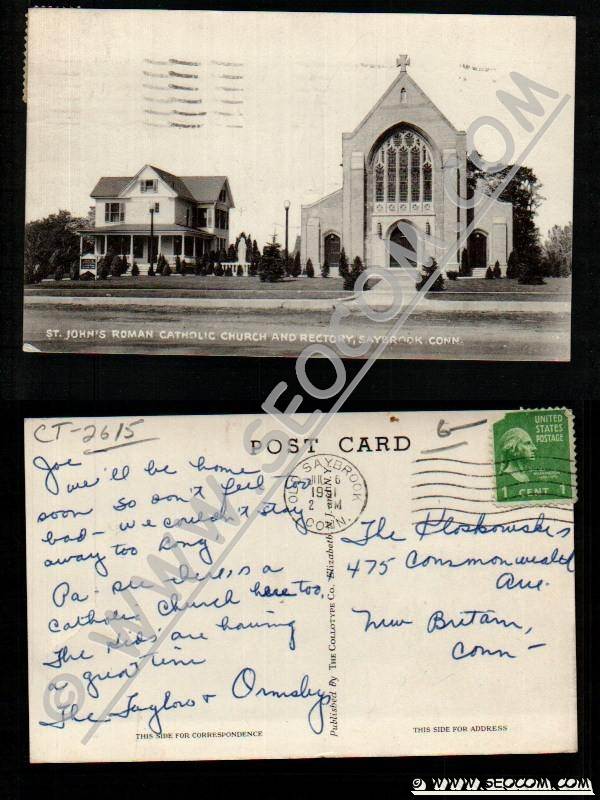 ST. JOHN'S ROMAN CATHOLIC CHURCH AND RECTORY, SAYBROOK, CONN.
© WWW.SEOCOM.COM
CT-2615
6
POST CARD
UNITED STATES POSTAGE
1 CENT 1
OLD SAYBROOK
6
1951
2 M
CONN.
Joe
we'll be home
soon so don't feel too
bad - we couldn't stay
away too long
Pa - see there's a
catholic church here too,
The kids are having
a great time
The Taylors & Ormsbys
The Ploskowskis
475 Commonwealth
Ave.
New Britain,
Conn -
Published By THE COLLOTYPE Co., Elizabeth, N.J. and N.Y.
THIS SIDE FOR CORRESPONDENCE
THIS SIDE FOR ADDRESS
© WWW.SEOCOM.COM